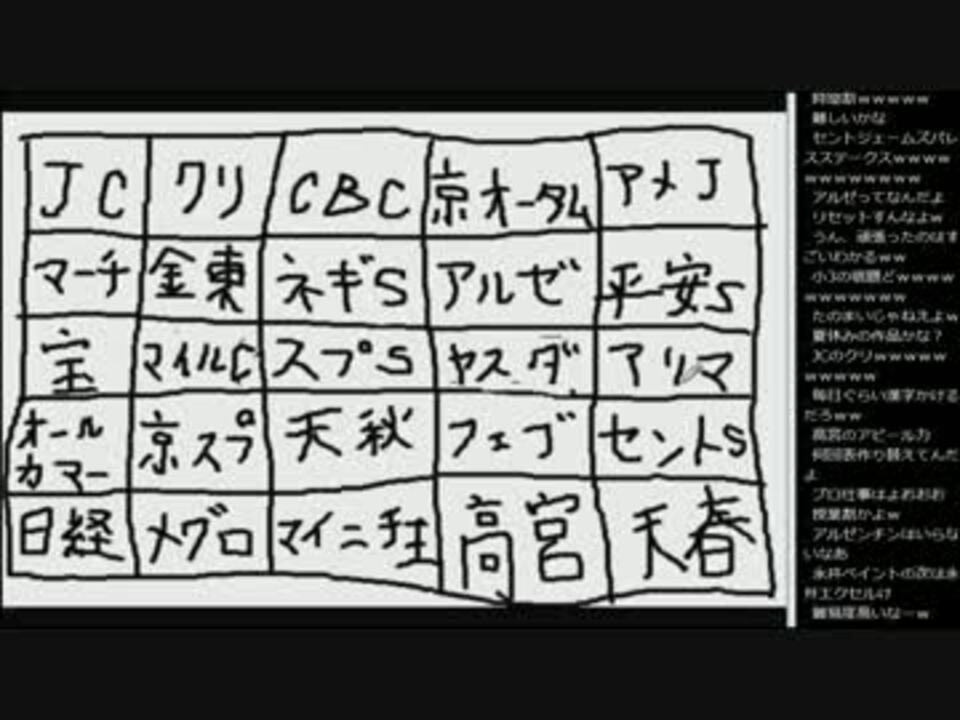 JC
クリ
CBC
京オータム
アメJ
マーチ
金東
ネギS
アルゼ
平安S
宝
マイルC
スプS
ヤスダ
アリマ
オール
カマー
京スプ
天秋
フェブ
セントS
日経
メグロ
マイニチ王
高宮
天春
難しいかな
セントジェームズパレ
スステークスwwww
wwwwwwwww
アルゼってなんだよ
リセットすんなよw
うん、頑張ったのはす
ごいわかるww
小3の宿題どwwww
wwwwwwww
たのまいじゃねえよw
夏休みの作品かな?
JCのクリwwwww
wwwwww
毎日ぐらい漢字かける
だろww
高宮のアピール力
何回表作り替えてんだ
よ
プロ仕事はよおおお
授業割かよw
アルゼンチンはいらな
いなあ
永井ペイントの次は永
井エクセルけ
難易度高いなーw